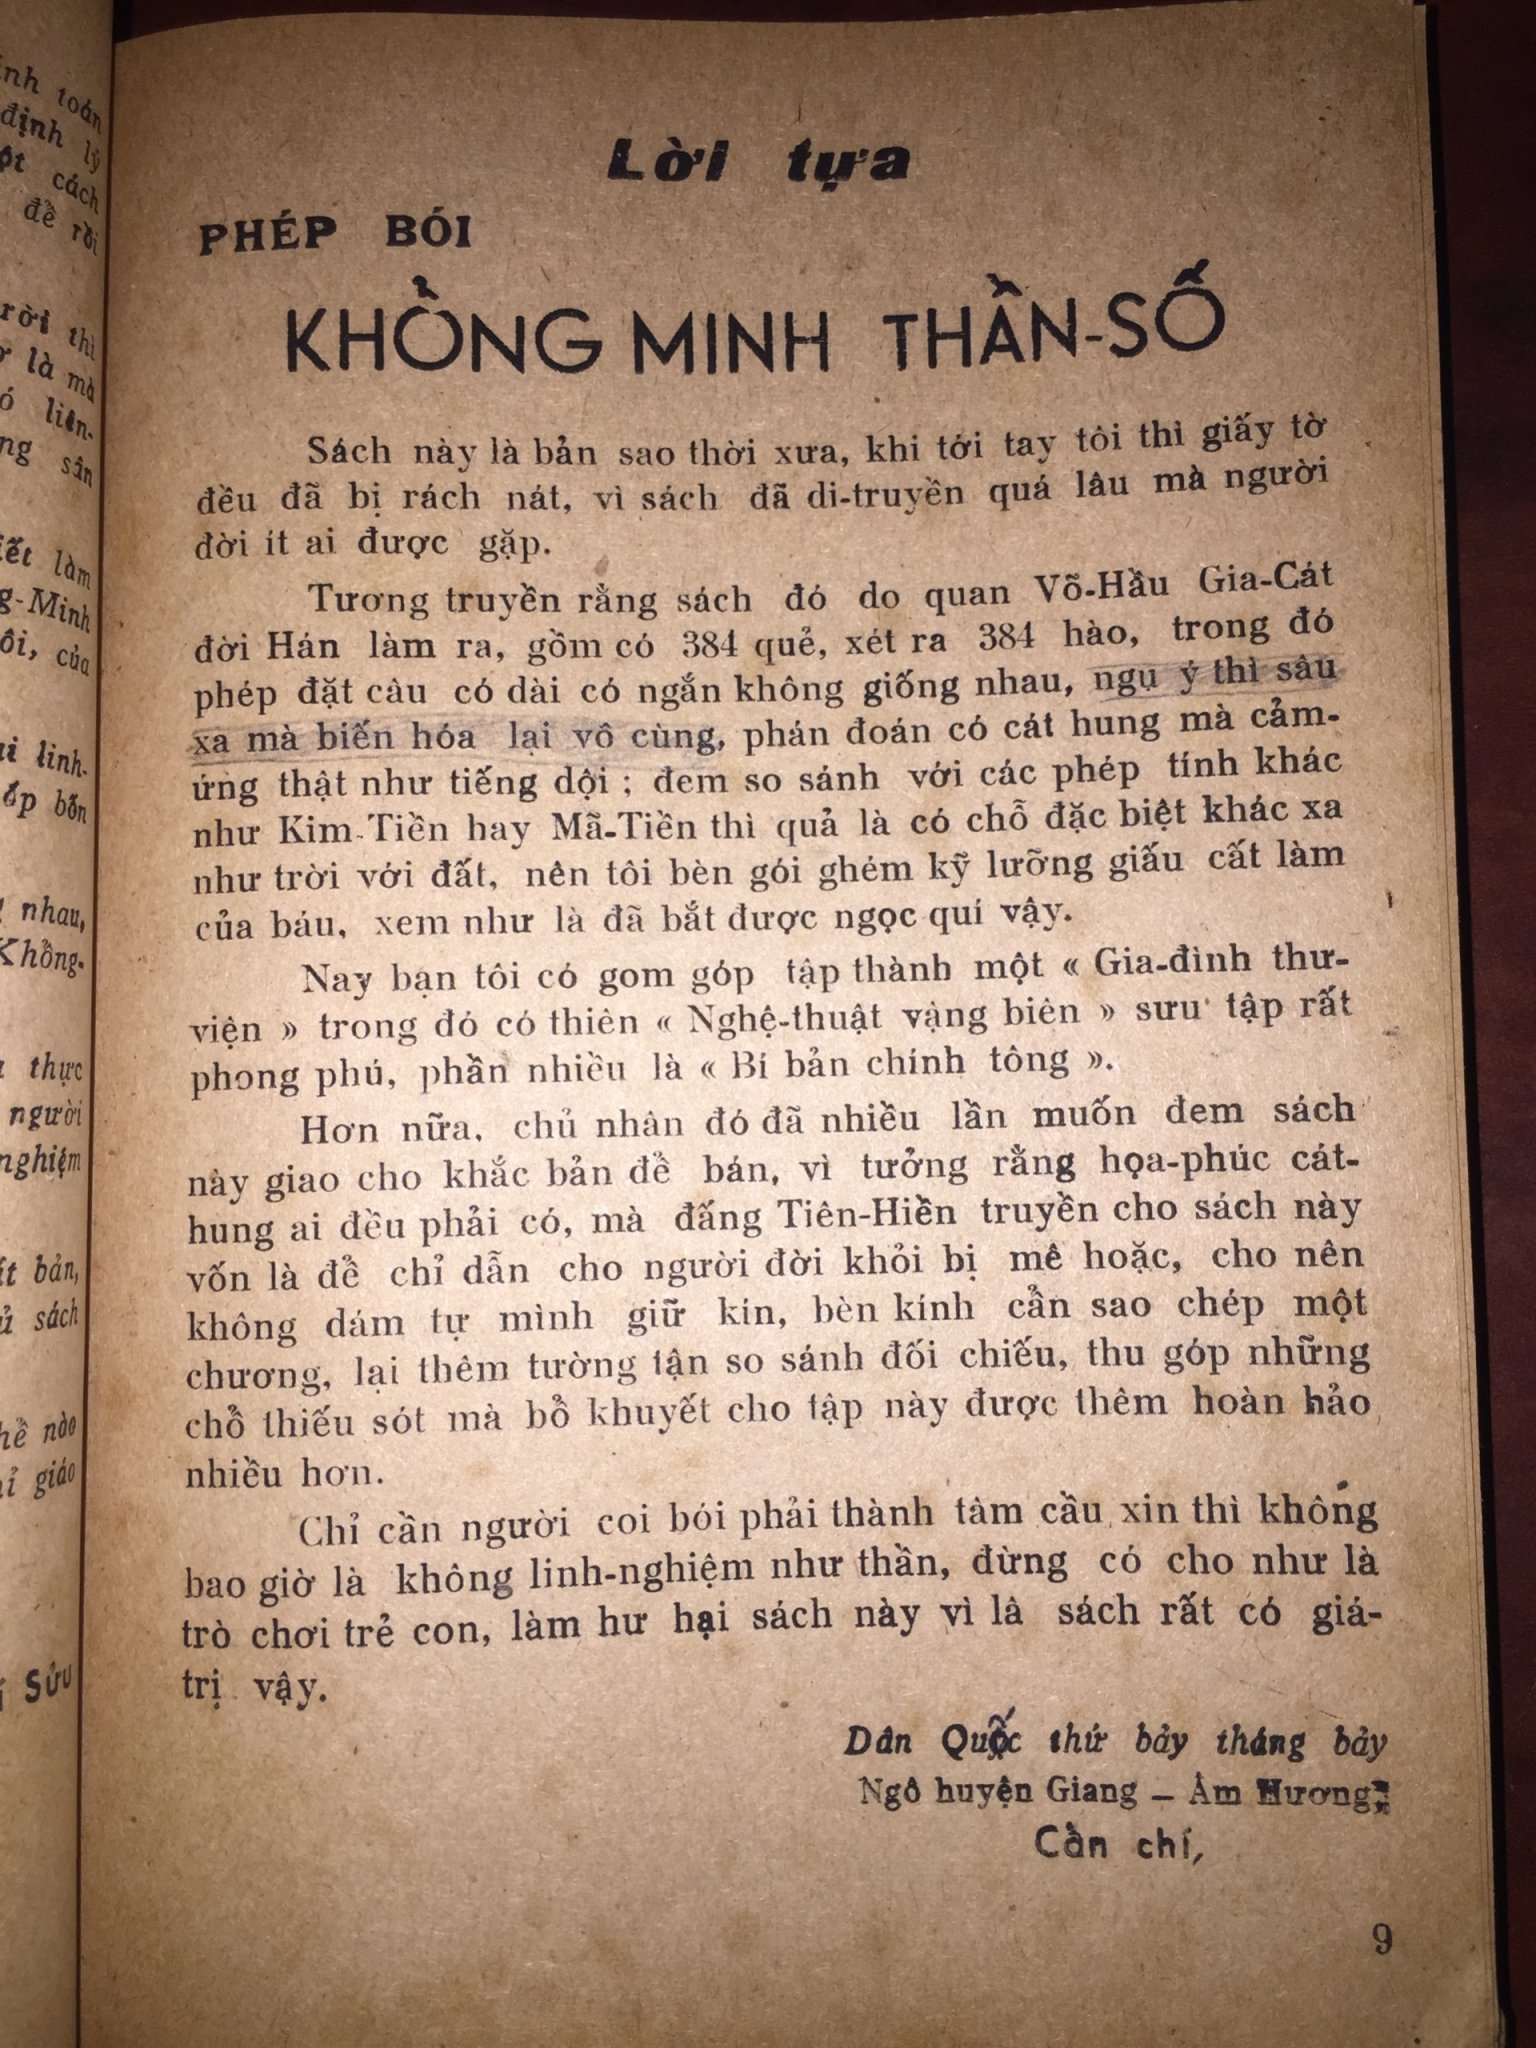 ính toán
định lý
ột cách
để rồi
rời thì
ơ là mà
ó liên-
ng sân
iết làm
g-Minh
ôi, của
ai linh-
ấp bốn
g nhau,
Khổng-
a thực
người
nghiệm
ất bản,
ủ sách
hề nào
hỉ giáo
í Sửu
Lời tựa
PHÉP BÓI
KHỔNG MINH THẦN-SỐ
Sách này là bản sao thời xưa, khi tới tay tôi thì giấy tờ
đều đã bị rách nát, vì sách đã di-truyền quá lâu mà người
đời ít ai được gặp.
Tương truyền rằng sách đó do quan Võ-Hầu Gia-Cát
đời Hán làm ra, gồm có 384 quẻ, xét ra 384 hào, trong đó
phép đặt câu có dài có ngắn không giống nhau, ngụ ý thì sâu
xa mà biến hóa lại vô cùng, phán đoán có cát hung mà cảm-
ứng thật như tiếng dội ; đem so sánh với các phép tính khác
như Kim-Tiền hay Mã-Tiền thì quả là có chỗ đặc biệt khác xa
như trời với đất, nên tôi bèn gói ghém kỹ lưỡng giấu cất làm
của báu, xem như là đã bắt được ngọc quí vậy.
Nay bạn tôi có gom góp tập thành một « Gia-đình thư-
viện » trong đó có thiên « Nghệ-thuật vàng biên » sưu tập rất
phong phú, phần nhiều là « Bí bản chính tông ».
Hơn nữa, chủ nhân đó đã nhiều lần muốn đem sách
này giao cho khắc bản để bán, vì tưởng rằng họa-phúc cát-
hung ai đều phải có, mà đấng Tiên-Hiền truyền cho sách này
vốn là để chỉ dẫn cho người đời khỏi bị mê hoặc, cho nên
không dám tự mình giữ kín, bèn kính cẩn sao chép một
chương, lại thêm tường tận so sánh đối chiếu, thu góp những
chỗ thiếu sót mà bổ khuyết cho tập này được thêm hoàn hảo
nhiều hơn.
Chỉ cần người coi bói phải thành tâm cầu xin thì không
bao giờ là không linh-nghiệm như thần, đừng có cho như là
trò chơi trẻ con, làm hư hại sách này vì là sách rất có giá-
trị vậy.
Dân Quốc thứ bảy tháng bảy
Ngô huyện Giang — Âm Hương
Cẩn chí,
9